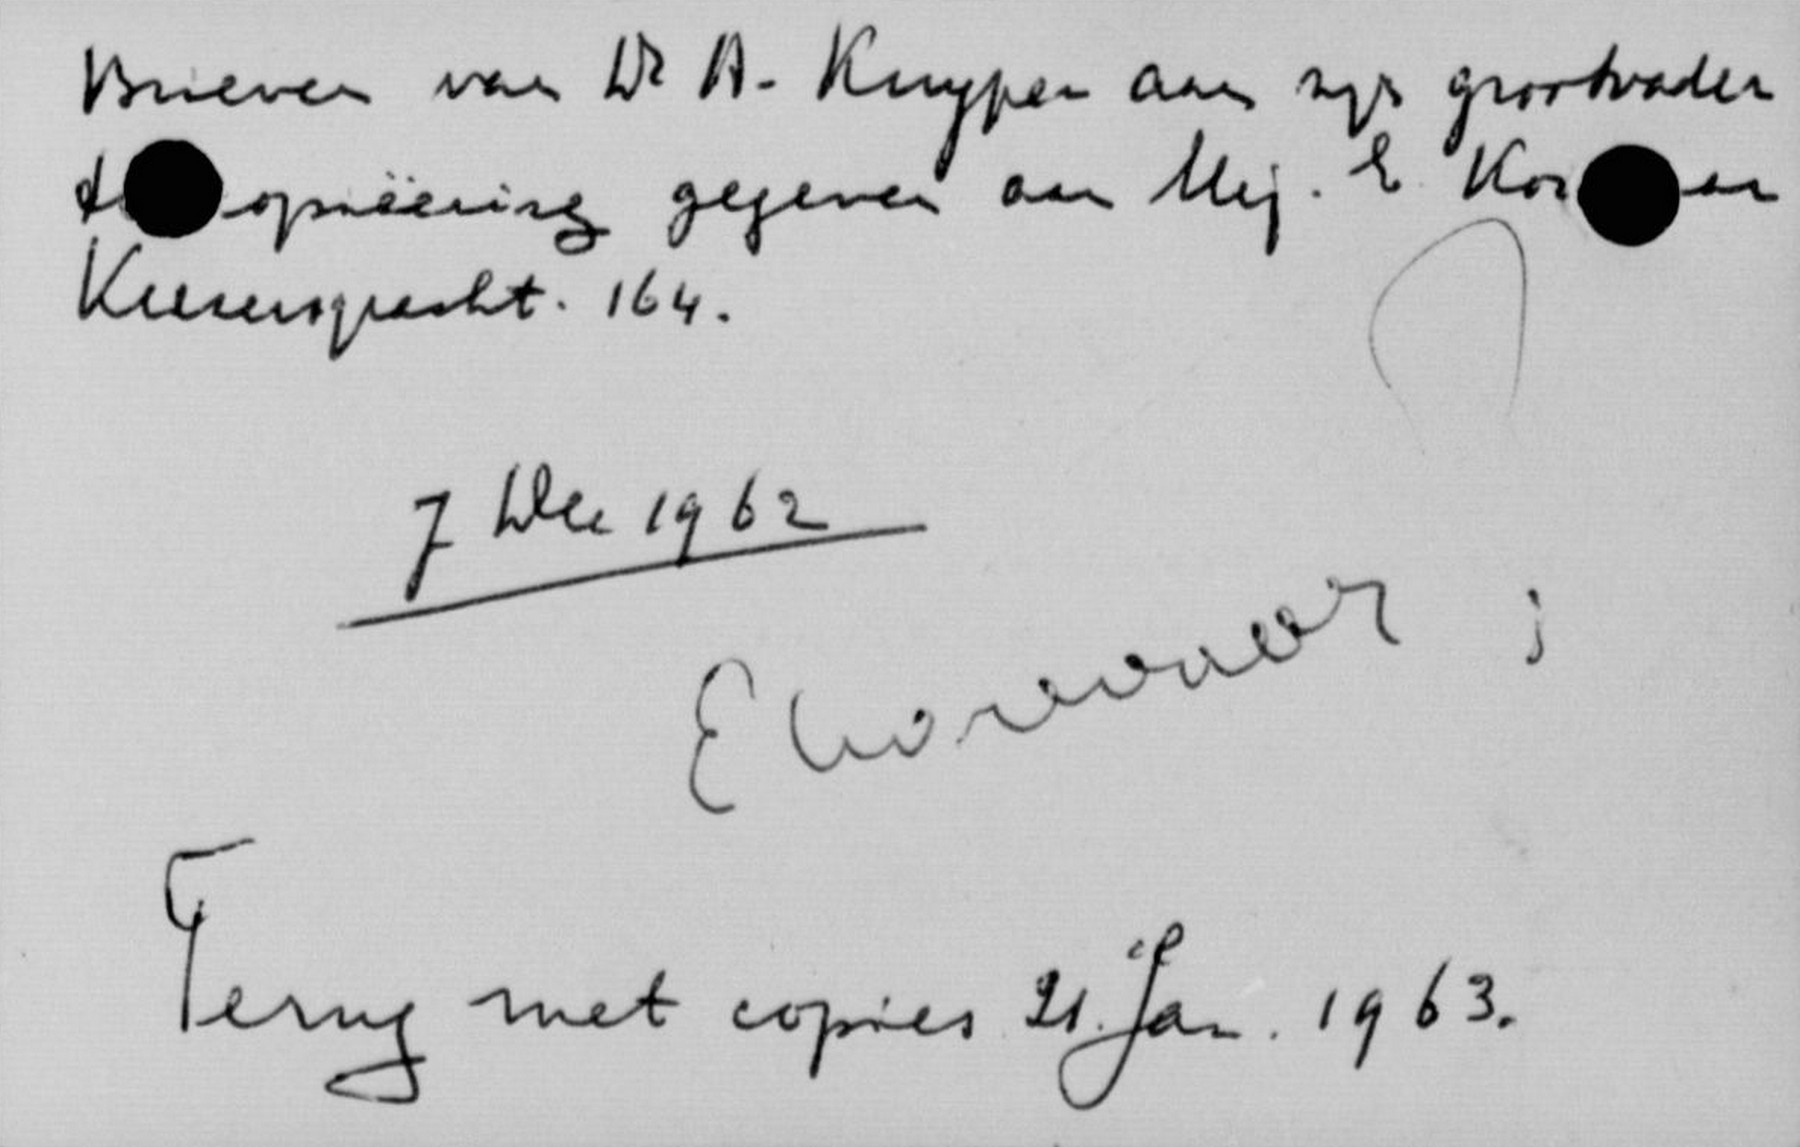 Brieven van Dr A. Kuyper aan zijn grootvader
opiëering gegeven aan Mej. E. Kor
Keizersgracht. 164.
7 Dec 1962
E
Terug met copies 21. Jan. 1963.